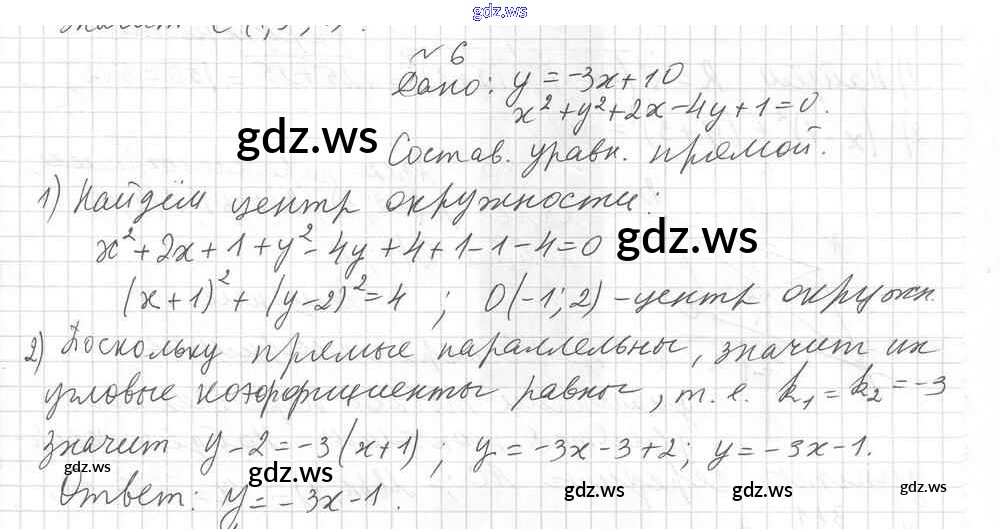 gdz.ws
№ 6
Дано: y = -3x+10
x²+y²+2x-4y+1=0.
gdz.ws
Состав. уравн. прямой.
1) Найдём центр окружности:
gdz.ws
x²+2x+1+y²-4y+4+1-1-4=0
(x+1)²+(y-2)²=4 ; O(-1; 2) - центр окружн.
2) Поскольку прямые параллельны, значит их
угловые коэффициенты равны, т. е. k₁=k₂=-3
значит y-2=-3(x+1) ; y=-3x-3+2; y=-3x-1.
gdz.ws gdz.ws gdz.ws gdz.ws gdz.ws
Ответ: y=-3x-1.